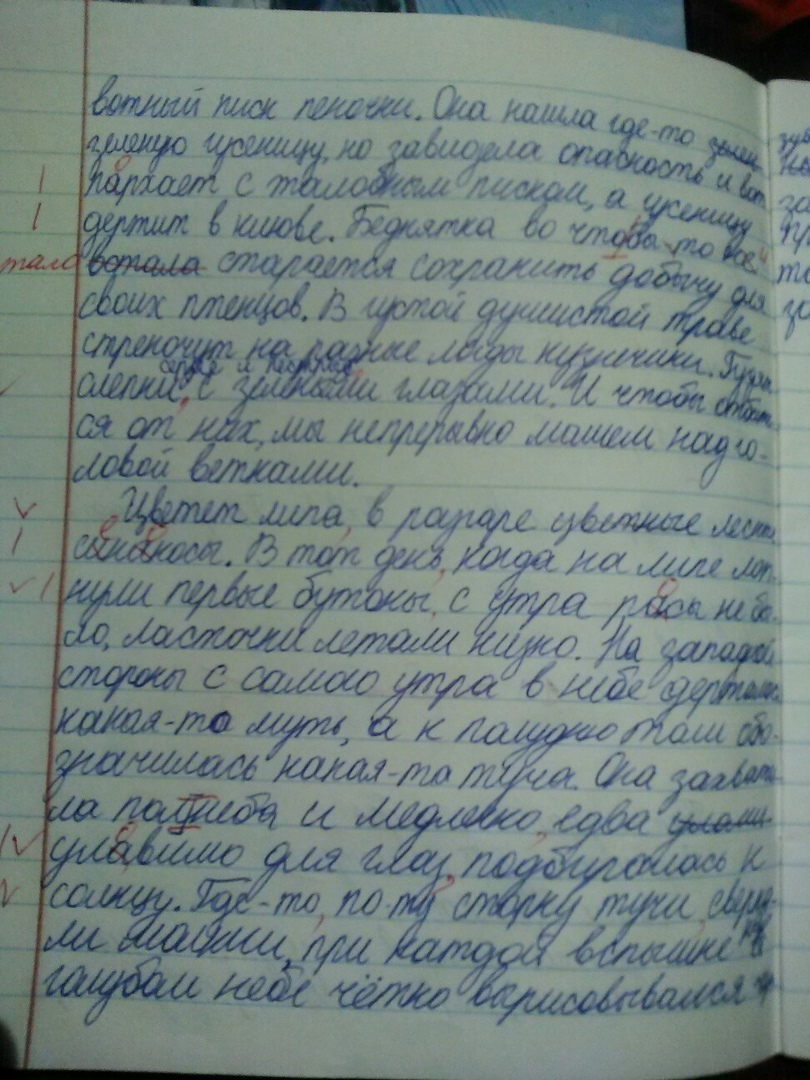 вотный писк пеночки. Она нашла где-то зелен
зеленую гусеницу, но завидела опасность и вот
пархает с жалобным писком, а гусеницу
держит в клюве. Беднятка во чтобы то все
тало вотала старается сохранить добычу для
своих птенцов. В густой душистой траве
стрекочут на разные лады кузнечики. Гудят
слепни, с зелеными глазами. И чтобы отбить
ся от них, мы непрерывно машем над го-
ловой ветками.
Цветет липа, в разгаре цветные
сенокосы. В тот день, когда на липе лоп-
нули первые бутоны, с утра росы не бы-
ло, ласточки летали низко. На западной
стороны с самого утра в небе держалась
какая-то муть, а к полудню там обо-
значилась какая-та туча. Она захвати
ла полнеба и медленно, едва улови
уловимо для глаз, подбиралась к
солнцу. Где-то, по ту сторну тучи, сверка-
ли молнии, при каждой вспышке на
голубом небе чётко вырисовывался